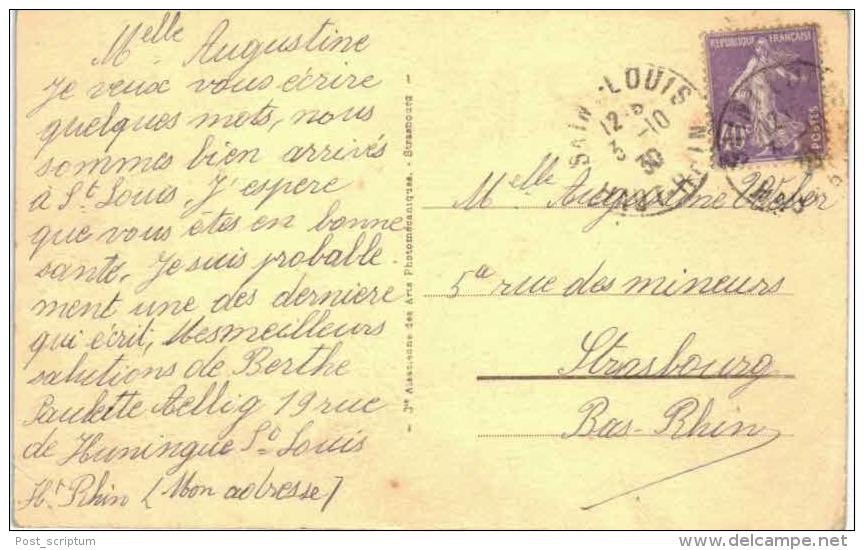 Melle Augustine
Je veux vous écrire
quelques mots, nous
sommes bien arrivés
à St Louis, J'espere
que vous êtes en bonne
santé, Je suis probable-
ment une des derniere
qui écrit, Mesmeilleurs
salutions de Berthe
Paulette Aellig 19 rue
de Huningue St Louis
Ht Rhin [Mon adresse]
- Jte Alsacienne des Arts Photomécaniques. - Strasbourg -
SAINT-LOUIS
12-
5-10
30
HAUT-RHIN
REPUBLIQUE FRANÇAISE
40
POSTES
Melle Augustine Weber
5a rue des mineurs
Strasbourg
Bas-Rhin
Post_scriptum
www.delcampe.net